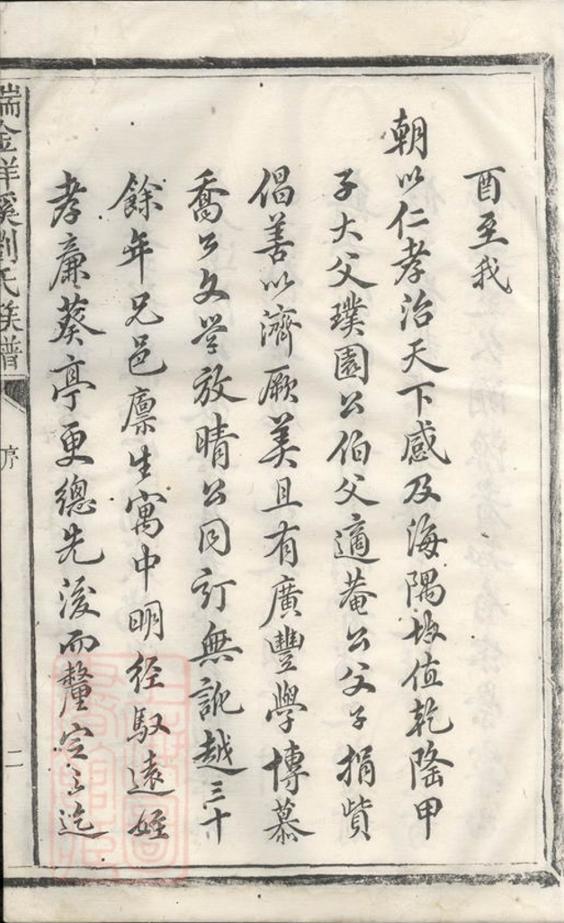 酉至我
朝以仁孝治天下感及海隅均值乾隆甲
子大父璞園公伯父適菴公父子捐貲
倡善以濟厥美且有廣豐學博慕
喬公文学放晴公同訂無訛越三十
餘年兄邑廪生寓中明经馭遠姪
孝亷葵亭更總先後而釐定之迄
瑞金祥溪劉氏族譜
序
二